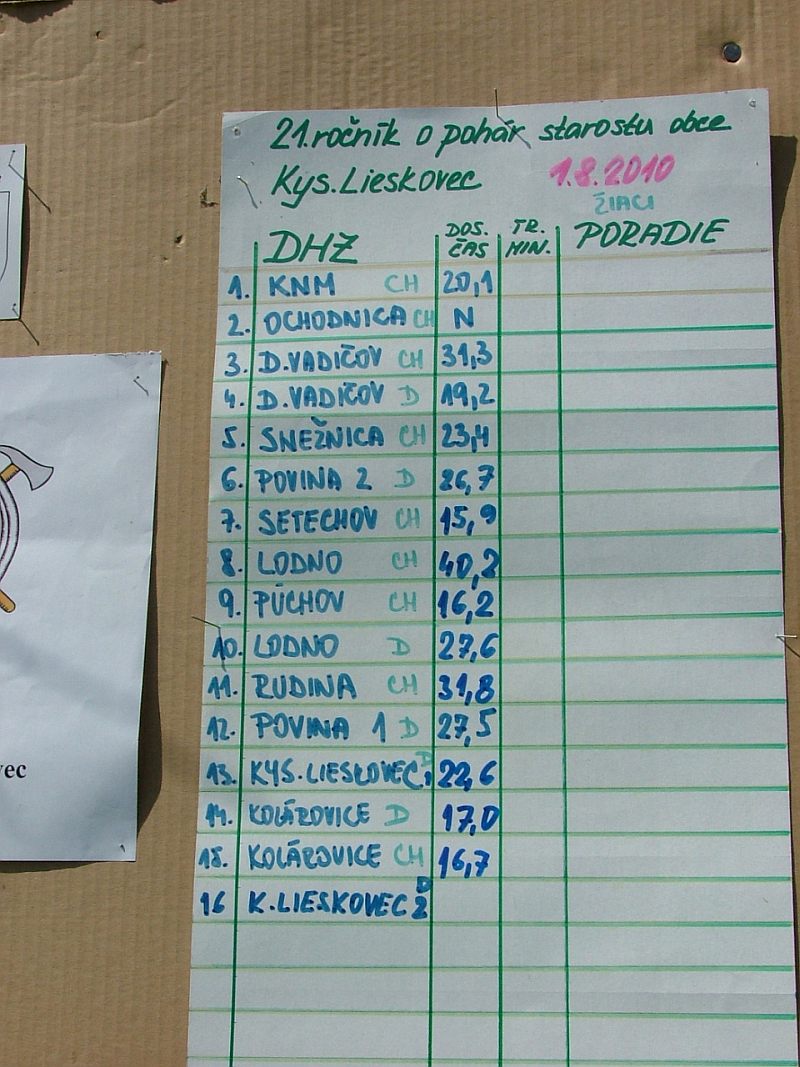 21. ročník o pohár starostu obce
Kys. Lieskovec 1.8.2010
ŽIACI
DHZ DOS. ČAS TR. MIN. PORADIE
1. KNM CH 20,1
2. OCHODNICA CH N
3. D. VADIČOV CH 31,3
4. D. VADIČOV D 19,2
5. SNEŽNICA CH 23,4
6. POVINA 2 D 26,7
7. SETECHOV CH 15,9
8. LODNO CH 40,2
9. PÚCHOV CH 16,2
10. LODNO D 27,6
11. RUDINA CH 31,8
12. POVINA 1 D 27,5
13. KYS. LIESKOVEC 1 D 22,6
14. KOLÁROVICE D 17,0
15. KOLÁROVICE CH 16,7
16 K. LIESKOVEC 2 D
vec